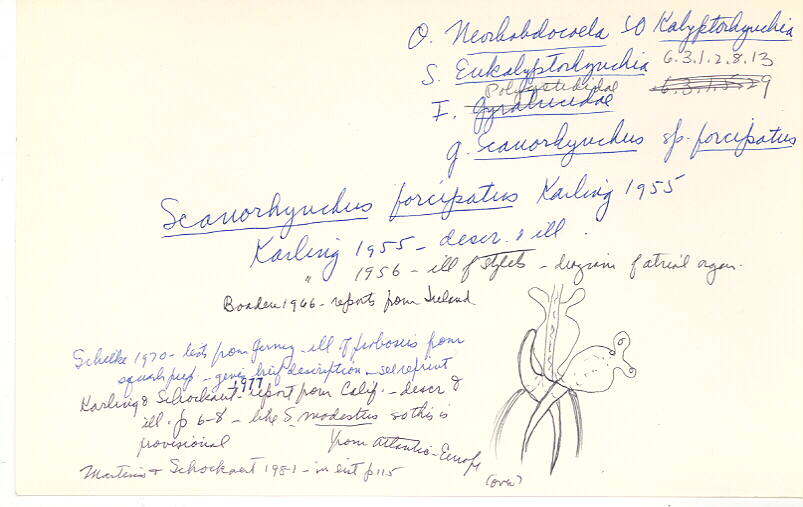 O. Neorhabdocoela SO Kalyptorhynchia
S. Eukalyptorhynchia 6.3.1.2.8.13
Polycystididae
F. Gyratricidae 6.3.1.5.29
g. Scanorhynchus sp. forcipatus
Scanorhynchus forcipatus Karling 1955
Karling 1955 - descr. & ill.
" 1956 - ill of stylets - diagram of atrial organ.
Boaden 1966 - reports from Ireland
Schilke 1970 - lists from Germany - ill of proboscis from
squash prep - gives brief description - see reprint
Karling & Schockaert 1977 - report from Calif. - descr &
ill. p 6-8 - like S. modestus so this is
provisional from Atlantic - Europe
Martens & Schockaert 1981 - in list p 115
(over)